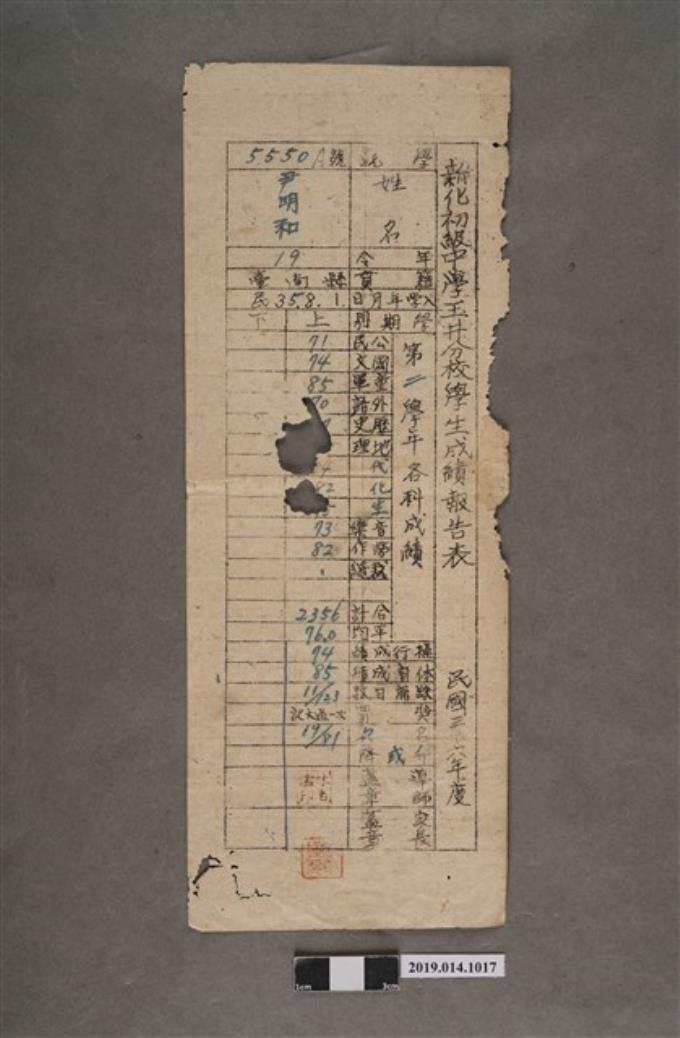 新化初級中學玉井分校學生成績報告表 民國三十六年度
第二學年各科成績
學號 5550 A號
姓名 尹明和
年令 19
籍貫 臺南縣
入學年月日 民35.8.1.
學期別 上 下
公民 71
國文 74
童軍 85
外國語 70
歷史
地理
代
化
生
音樂 73
勞作 82
合計 2356
平均 76.0
操行成績 74
體育成績 85
缺席日數 11/123
獎 記大過一次
名次 19/41
升或降
導師蓋章
家長蓋章
1cm 3cm
2019.014.1017